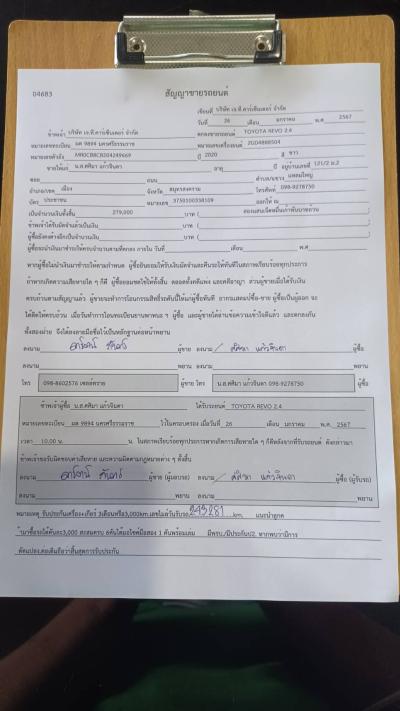 04683
สัญญาขายรถยนต์
เขียนที่ บริษัท เจ.ที.คาร์เซ็นเตอร์ จำกัด
วันที่ 26 เดือน มกราคม พ.ศ. 2567
ข้าพเจ้า บริษัท เจ.ที.คาร์เซ็นเตอร์ จำกัด ตกลงขายรถยนต์ TOYOTA REVO 2.4
หมายเลขทะเบียน ผค 9894 นครศรีธรรมราช หมายเลขเครื่องยนต์ 2GD4888504
หมายเลขตัวถัง MR0CB8CB204249669 ปี 2020 สี ขาว
ขายให้แก่ น.ส.ศศิมา แก้วจินดา อายุ ปี อยู่บ้านเลขที่ 121/2 ม.2
ซอย ถนน ตำบล/แขวง แหลมใหญ่
อำเภอ/เขต เมือง จังหวัด สมุทรสงคราม โทรศัพท์ 098-9278750
บัตร ประชาชน หมายเลข 3750100338109 ออกให้ ณ
เป็นจำนวนเงินทั้งสิ้น 279,000 บาท ( สองแสนเจ็ดหมื่นเก้าพันบาทถ้วน )
ข้าพเจ้าได้รับมัดจำแล้วเป็นเงิน บาท ( )
ผู้ซื้อยังคงค้างอีกเป็นจำนวนเงิน บาท ( )
ผู้ซื้อจะนำเงินมาชำระให้ครบจำนวนตามที่ตกลง ภายใน วันที่ เดือน พ.ศ.
หากผู้ซื้อไม่นำเงินมาชำระให้ตามกำหนด ผู้ซื้อยินยอมให้ริบเงินมัดจำและคืนรถให้ทันทีในสภาพเรียบร้อยทุกประการ
ถ้าหากเกิดความเสียหายใด ๆ ก็ดี ผู้ซื้อยอมชดใช้ให้ทั้งสิ้น ตลอดทั้งคดีแพ่ง และคดีอาญา ส่วนผู้ขายเมื่อได้รับเงิน
ครบถ้วนตามสัญญาแล้ว ผู้ขายจะทำการโอนกรรมสิทธิ์รถคันนี้ให้แก่ผู้ซื้อทันที อากรแสตมป์ซื้อ-ขาย ผู้ซื้อเป็นผู้ออก จะ
ทั้งสองฝ่าย จึงได้ลงลายมือชื่อไว้เป็นหลักฐานต่อหน้าพยาน
ลงนาม ผู้ขาย ลงนาม ศศิมา แก้วจินดา ผู้ซื้อ
ลงนาม พยาน ลงนาม พยาน
โทร 098-8602576 เซลล์ทราย ผู้ขาย โทร น.ส.ศศิมา แก้วจินดา 098-9278750 ผู้ซื้อ
ข้าพเจ้าผู้ซื้อ น.ส.ศศิมา แก้วจินดา ได้รับรถยนต์ TOYOTA REVO 2.4
หมายเลขทะเบียน ผค 9894 นครศรีธรรมราช ไว้ในครอบครอง เมื่อวันที่ 26 เดือน มกราคม พ.ศ. 2567
เวลา 10.00 น. น. ในสภาพเรียบร้อยทุกประการหากเกิดการเสียหายใด ๆ ก็ดีหลังจากที่รับรถยนต์ ดังกล่าวมา
ข้าพเจ้าขอรับผิดชอบค่าเสียหาย และความผิดตามกฎหมายต่าง ๆ ทั้งสิ้น
ลงนาม ผู้ขาย (ผู้มอบรถ) ลงนาม ศศิมา แก้วจินดา ผู้ซื้อ (ผู้รับรถ)
ลงนาม พยาน ลงนาม พยาน
หมายเหตุ รับประกันเครื่อง+เกียร์ 3เดือนหรือ3,000km.เลขไมล์วันรับรถ 243281 km. แนะนำลูกค้า
มาซื้อรถได้คันละ3,000 สะสมครบ 6คันได้มอไซค์มือสอง 1 คันพร้อมเล่ม มีพรบ./มีประกัน2, หากพบว่ามีการ
ดัดแปลง,ต่อเติมถือว่าสิ้นสุดการรับประกัน